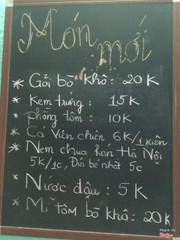 Món mới
* Gỏi bò khô: 20K
* Kem trứng: 15K
* Phồng tôm: 10K
* Cá viên chiên 6K/1 xiên
* Nem chua rán Hà Nội
5K/1c, Đủ bé nhất 5c
* Nước dâu: 5K
* Mì tôm bò khô: 20K